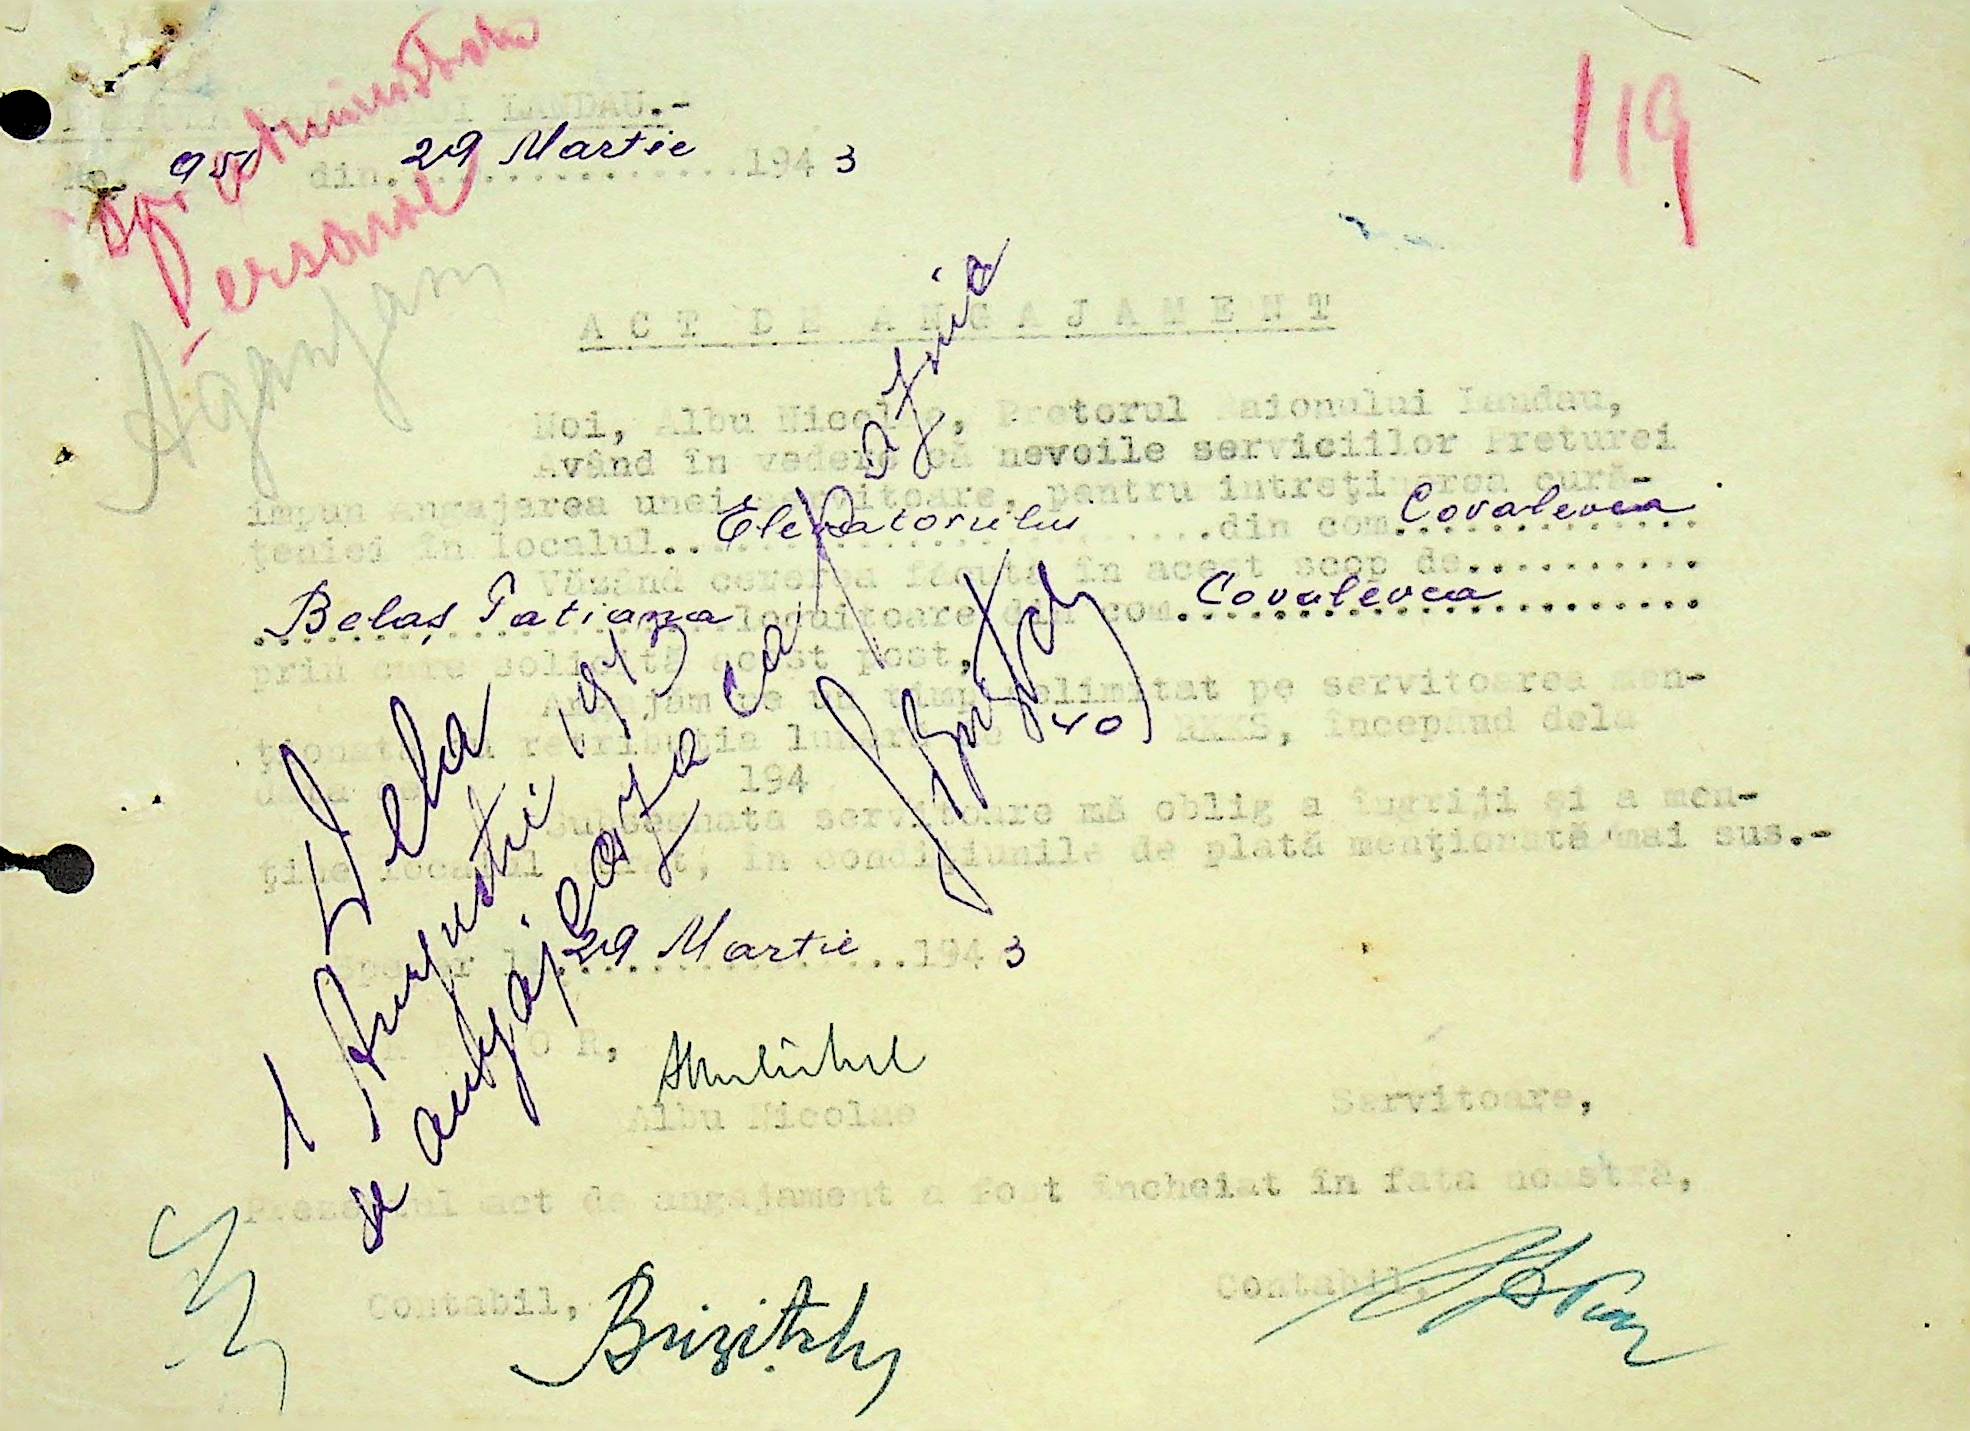 LANDAU.-
951 din 29 Martie 1943
119
Personal
Angajam
ACT DE ANGAJAMENT
Noi, Albu Nicolae, Pretorul Raionului Landau,
Având în vedere că nevoile serviciilor Preturei
impun angajarea unei servitoare, pentru întreţinerea cură-
ţeniei în localul..Elevatorului......din com.Covalevca
Văzând cererea făcută în acest scop de..........
Belaş Tatiana locuitoare din com. Covalevca
prin care solicită acest post,
Angajăm pe un timp nelimitat pe servitoarea men-
ţionată cu retribuţia lunară de 40 RKKS, începând dela
data de 194
Subsemnata servitoare mă oblig a îngriji şi a men-
ţine localul curat, în condiţiunile de plată menţionată mai sus.-
29 Martie 1943
Dela
1 August 1943
se angajeaza ca
PRETOR,
Albu Nicolae
Servitoare,
Prezentul act de angajament a fost încheiat în faţa noastră,
Contabil, Contabil,